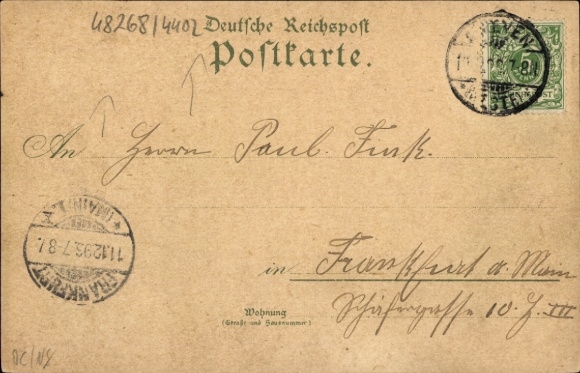 48268/4402
Deutsche Reichspost
Postkarte.
An Herrn Paul Funk.
FRANKFURT
11.12.96.7-8
(MAIN)
in Frankfurt a. Main
Schäfergasse 10. III
Wohnung
(Straße und Hausnummer)